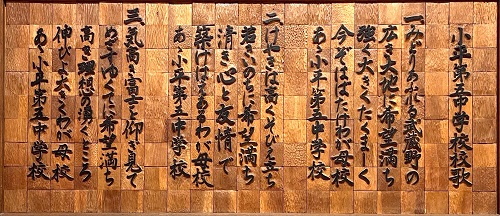 小平第五中学校校歌
一、みどり 武蔵野の
広き大地に希望満ち
強く大きくたくましく
今ぞはばたけわが母校
あゝ小平第五中学校
二、けやきは高くそびえ立ち
若きいのちに希望満ち
清き心と友情で
築けはえあるわが母校
あゝ小平第五中学校
三、気高き富士を仰ぎ見て
めざすゆくてに希望満ち
高き理想の湧くところ
伸びよ わが母校
あゝ小平第五中学校